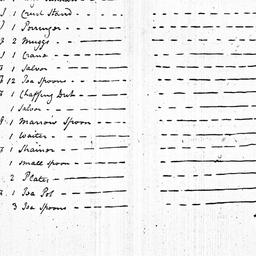 1 Cruet Stand
1 Porringer
2 Muggs
1 Crane
1 Salver
12 Tea Spoons
1 Chaffing Dish
1 Salver
1 Marrow Spoon
1 Waiter
1 Strainer
1 small spoon
2 Plates
1 Tea Pot
3 Tea Spoons